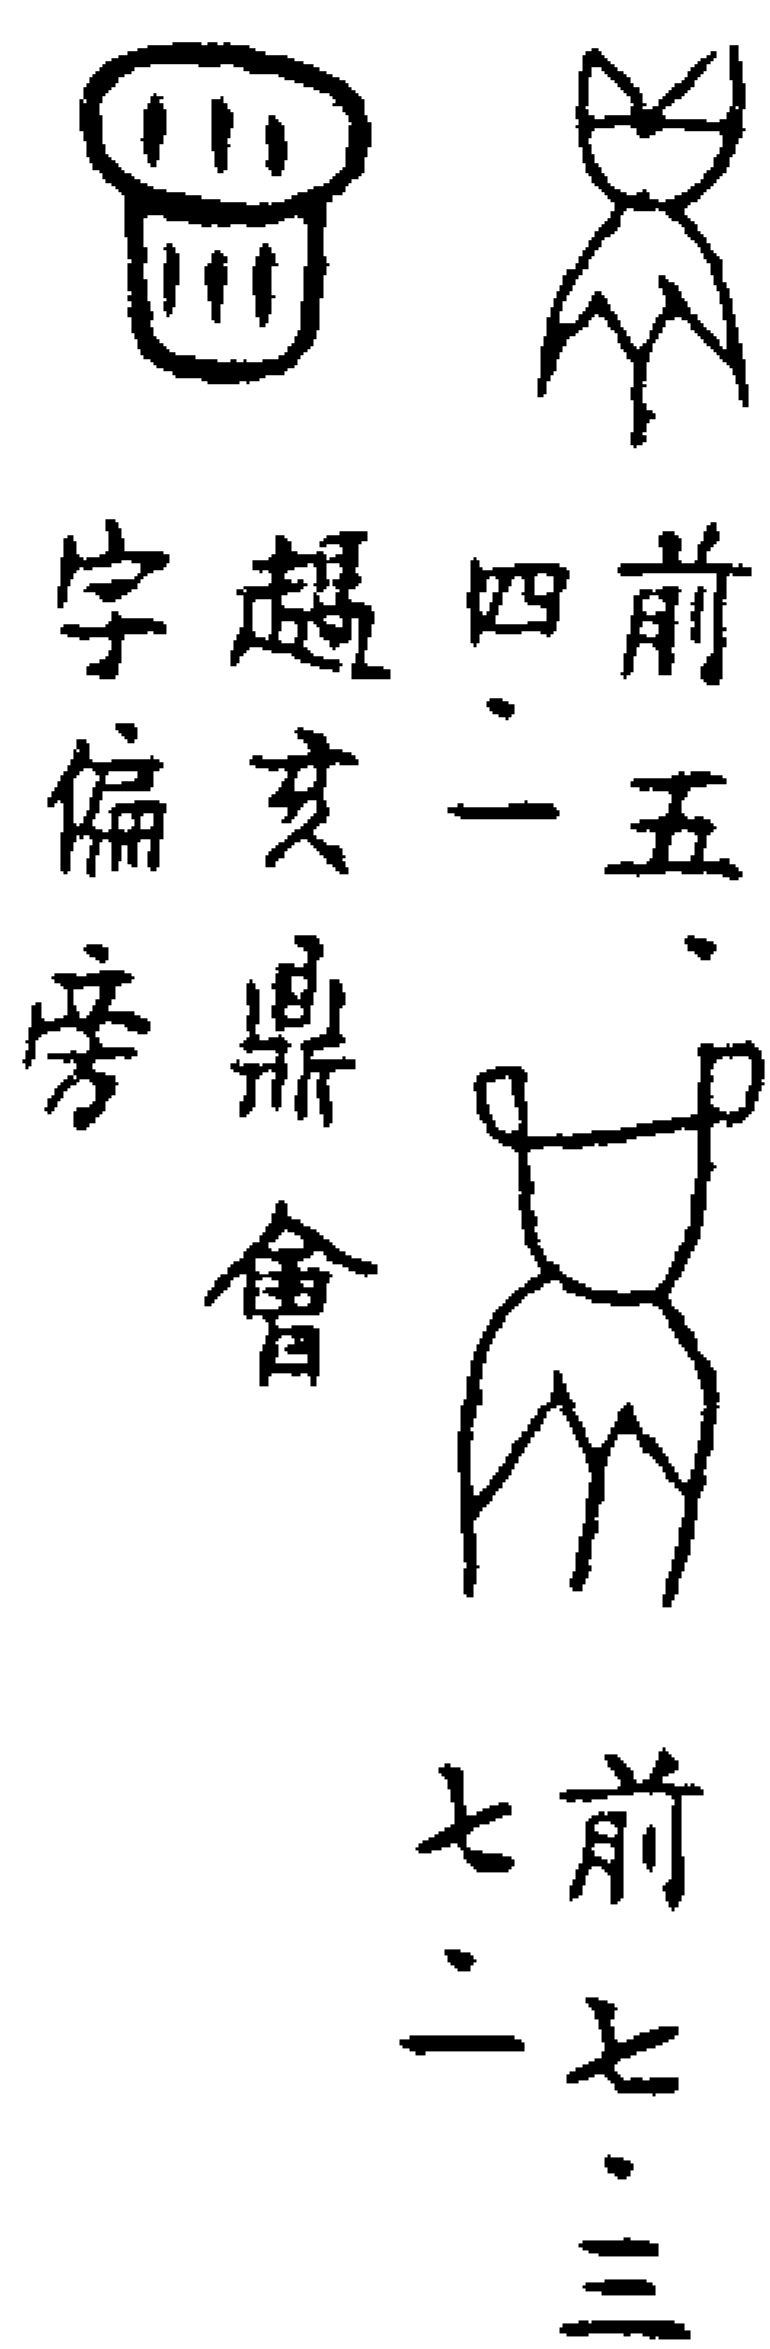 前五.
四.一
前七.三
七.一
亥鼎會
字偏旁